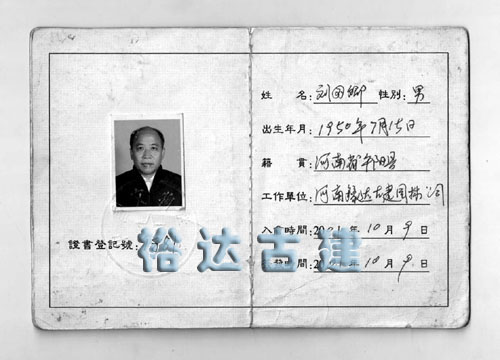 姓 名:刘国卿 性别:男
出生年月:1950年7月15日
籍 貫:河南省
工作單位:河南裕达古建园林公司
入會時間: 年10月9日
時間: 年10月9日
證書登記號:
裕达古建